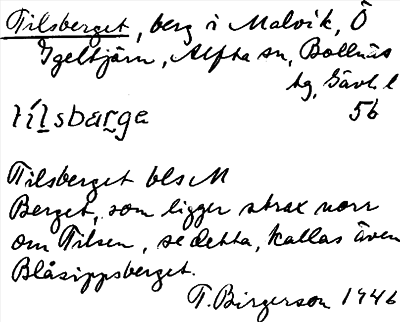 Tilsberget, berg i Malvik, Ö
Igeltjärn, Alfta sn, Bollnäs
tg, Gävl. l
tílsbarga 56
Tilsberget bls M
Berget, som ligger strax norr
om Tilsen, se detta, kallas även
Blåsippsberget.
T. Birgerson 1946